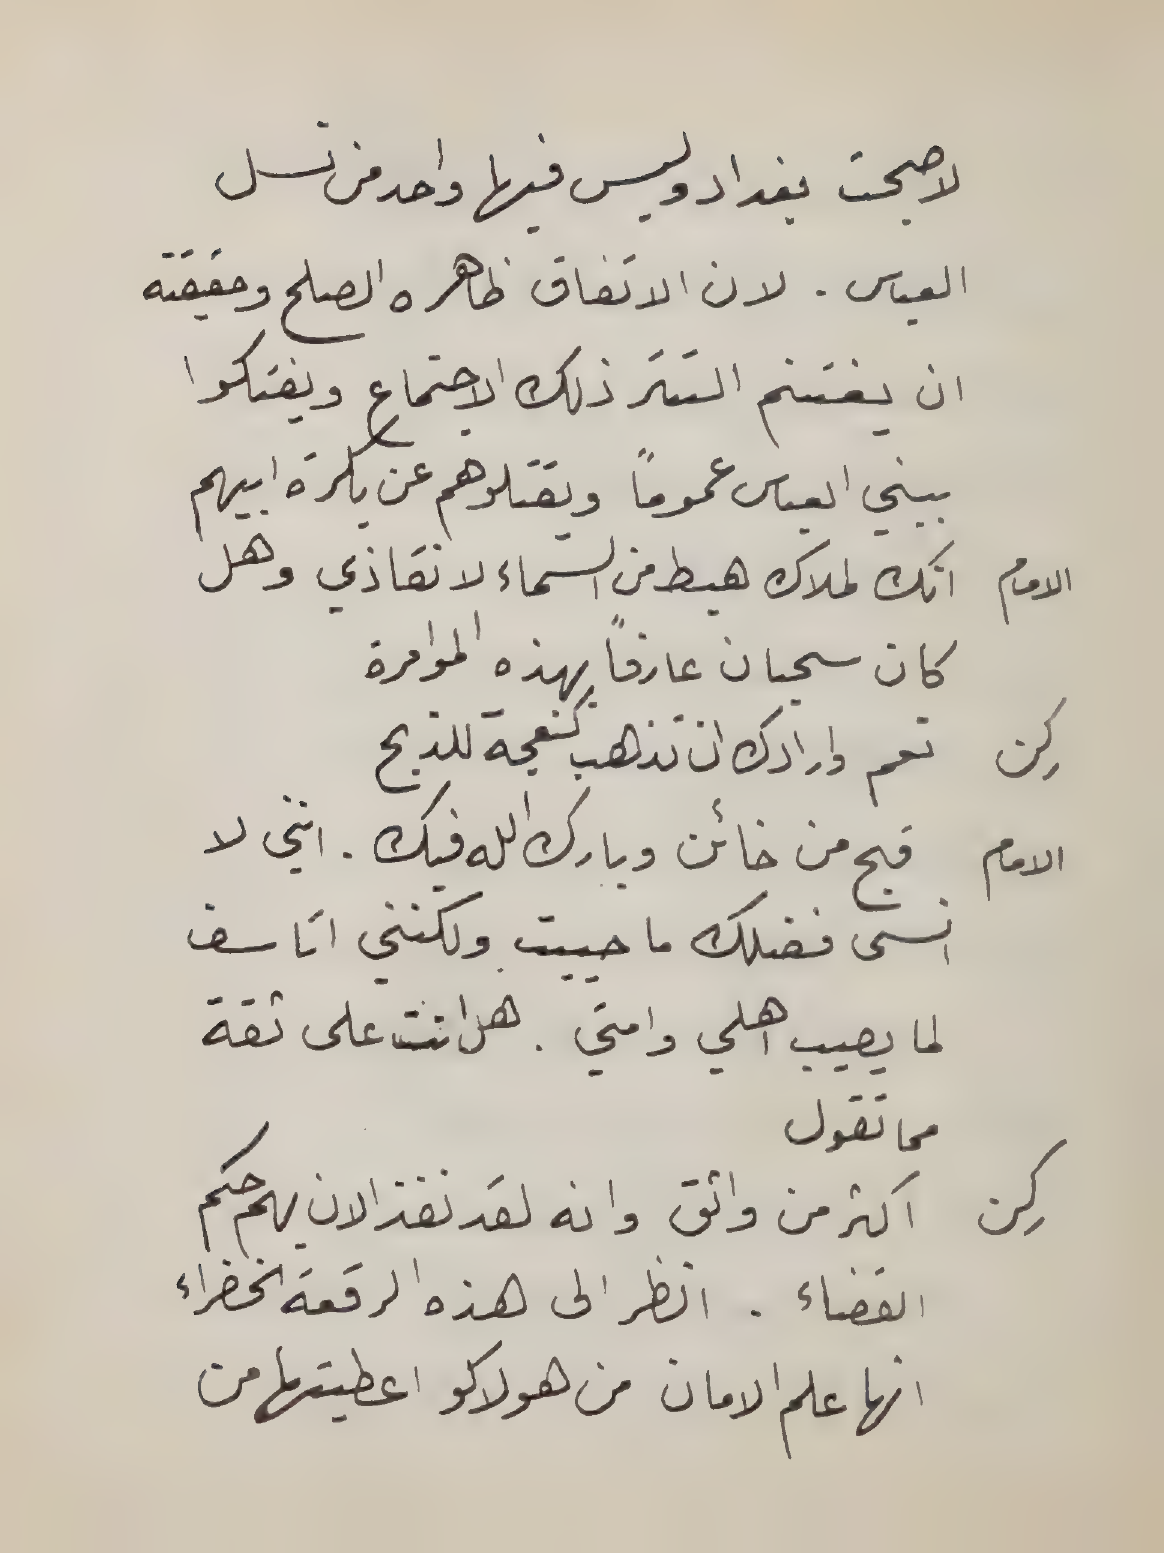 لاصبحت بغداد وليس فيها واحد من نسل
العباس . لان الاتفاق ظاهره الصلح وحقيقته
ان يغتنم التتر ذلك الاجتماع ويفتكوا
ببني العباس عموماً ويقتلوهم عن بكرة ابيهم
الامام انك لملاك هبط من السماء لانقاذي وهل
كان سحبان عارفاً بهذه المؤامرة
ركن نعم وارادك ان تذهب كنعجة للذبح
الامام قبح من خائن وبارك الله فيك . انني لا
انسى فضلك ما حييت ولكنني اتاسف
لما يصيب اهلي وامتي . هل انت على ثقة
مما تقول
ركن اكثر من واثق وانه لقد نفذ الان بهم حكم
القضاء . انظر الى هذه الرقعة الخضراء
انها علم الامان من هولاكو اعطيتها من